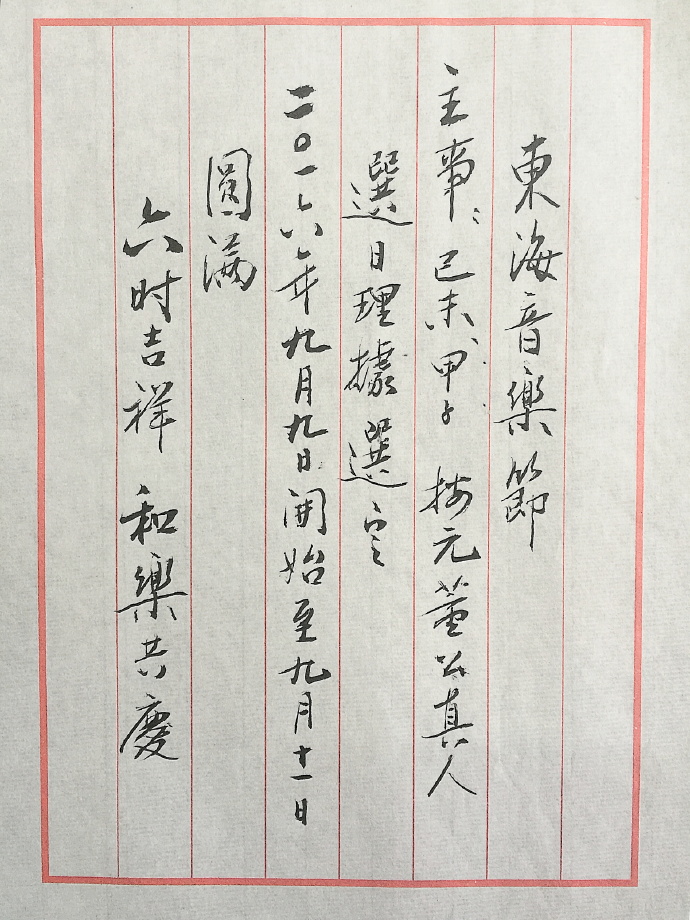 東海音樂節
主事：己未、甲子 按元董公真人
選日理據選定
二〇一六年九月九日開始至九月十一日
圓满
六时吉祥 和樂共慶